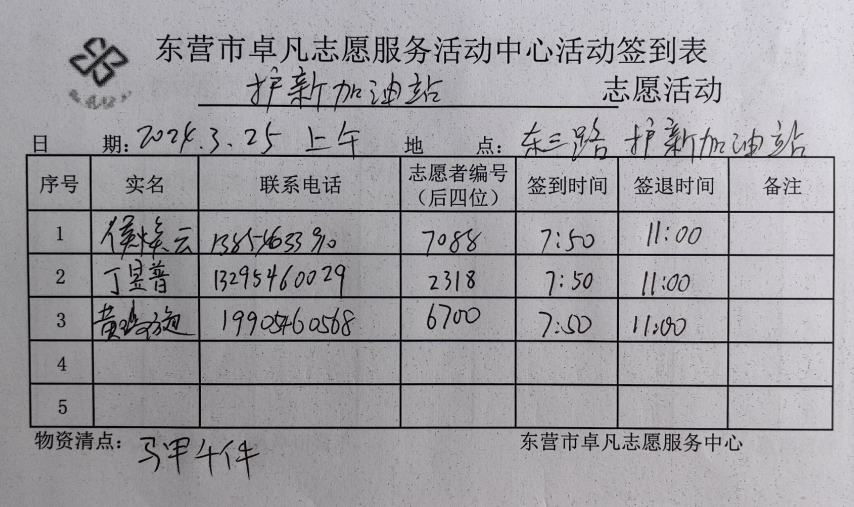 东营市卓凡志愿服务活动中心活动签到表
护新加油站 志愿活动
日期:2024.3.25 上午 地点:东三路 护新加油站
序号 实名 联系电话 志愿者编号(后四位) 签到时间 签退时间 备注
1 侯焕云 7088 7:50 11:00
2 丁昱普 13295460029 2318 7:50 11:00
3 黄 19905460568 6700 7:50 11:00
4
5
物资清点:马甲4件 东营市卓凡志愿服务中心